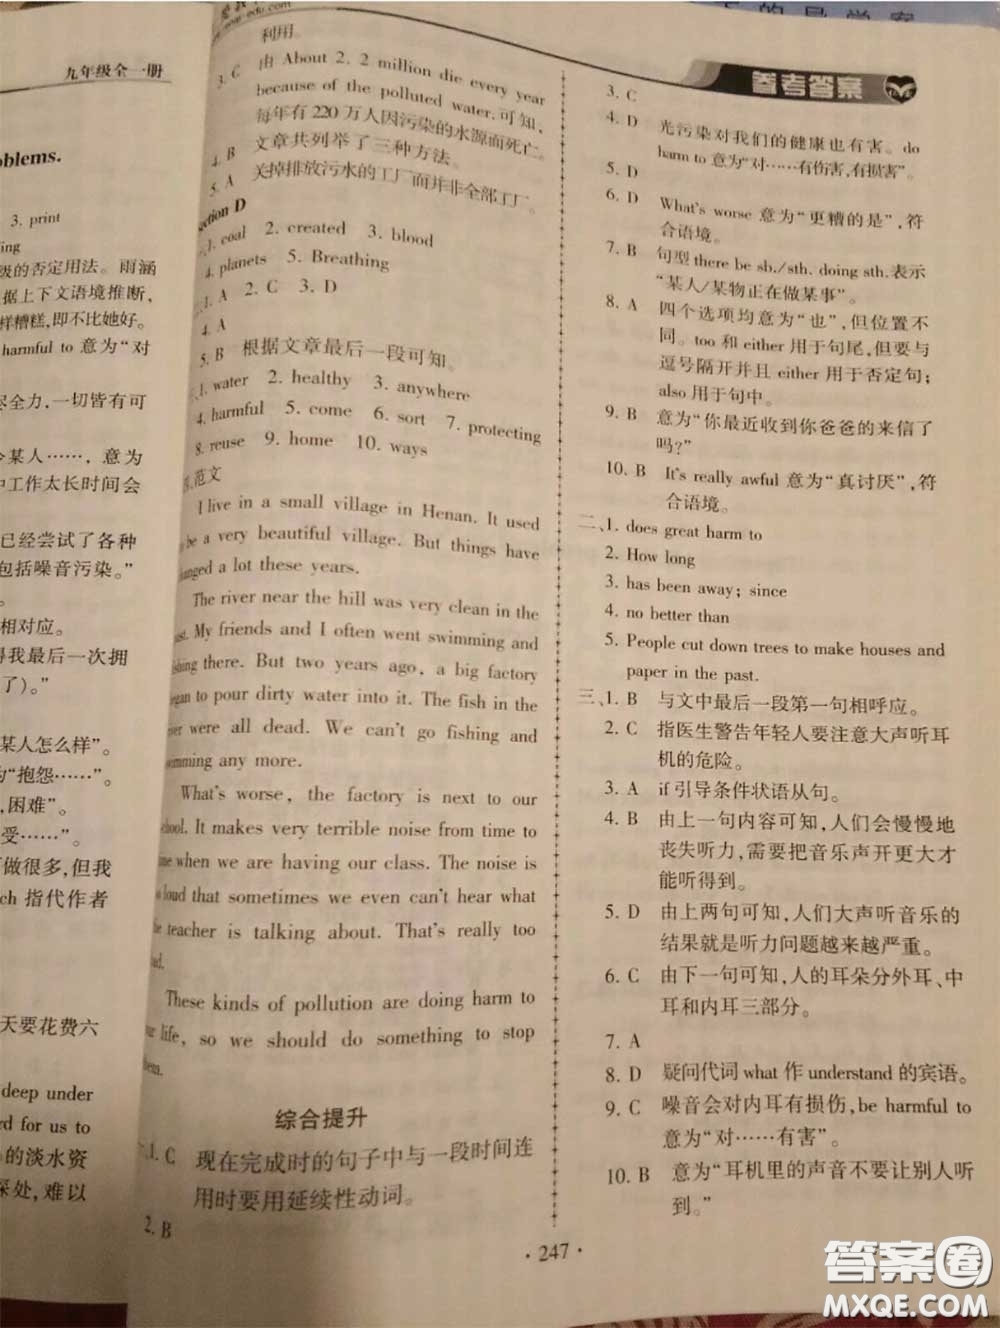 九年级全一册
oblems.
3. print
级的否定用法。雨涵
据上下文语境推断,
样糟糕,即不比她好。
harmful to 意为“对
尽全力,一切皆有可
令某人……, 意为
中工作太长时间会
已经尝试了各种
包括噪音污染。”
相对应。
得我最后一次拥
了)。”
某人怎么样”。
为“抱怨……”。
,困难”。
受……”。
做很多,但我
ch 指代作者
天要花费六
deep under
rd for us to
的淡水资
深处,难以
利用。
3. C 由 About 2. 2 million die every year
because of the polluted water. 可知,
每年有 220 万人因污染的水源而死亡。
4. B 文章共列举了三种方法。
5. A 关掉排放污水的工厂而并非全部工厂。
ection D
1. coal 2. created 3. blood
4. planets 5. Breathing
1. A 2. C 3. D
4. A
5. B 根据文章最后一段可知。
1. water 2. healthy 3. anywhere
4. harmful 5. come 6. sort 7. protecting
8. reuse 9. home 10. ways
范文
I live in a small village in Henan. It used
be a very beautiful village. But things have
nged a lot these years.
The river near the hill was very clean in the
ast. My friends and I often went swimming and
shing there. But two years ago, a big factory
egan to pour dirty water into it. The fish in the
iver were all dead. We can't go fishing and
mming any more.
What's worse, the factory is next to our
chool. It makes very terrible noise from time to
me when we are having our class. The noise is
loud that sometimes we even can't hear what
he teacher is talking about. That's really too
ad.
These kinds of pollution are doing harm to
ur life, so we should do something to stop
hem.
综合提升
一、1. C 现在完成时的句子中与一段时间连
用时要用延续性动词。
2. B
参考答案
3. C
4. D 光污染对我们的健康也有害。do
harm to 意为“对……有伤害,有损害”。
5. D
6. D What's worse 意为“更糟的是”,符
合语境。
7. B 句型 there be sb./sth. doing sth. 表示
“某人/某物正在做某事”。
8. A 四个选项均意为“也”,但位置不
同。too 和 either 用于句尾,但要与
逗号隔开并且 either 用于否定句;
also 用于句中。
9. B 意为“你最近收到你爸爸的来信了
吗?”
10. B It's really awful 意为“真讨厌”,符
合语境。
二、1. does great harm to
2. How long
3. has been away; since
4. no better than
5. People cut down trees to make houses and
paper in the past.
三、1. B 与文中最后一段第一句相呼应。
2. C 指医生警告年轻人要注意大声听耳
机的危险。
3. A if 引导条件状语从句。
4. B 由上一句内容可知,人们会慢慢地
丧失听力,需要把音乐声开更大才
能听得到。
5. D 由上两句可知,人们大声听音乐的
结果就是听力问题越来越严重。
6. C 由下一句可知,人的耳朵分外耳、中
耳和内耳三部分。
7. A
8. D 疑问代词 what 作 understand 的宾语。
9. C 噪音会对内耳有损伤,be harmful to
意为“对……有害”。
10. B 意为“耳机里的声音不要让别人听
到。”
· 247 ·
答案圈
MXQE.COM